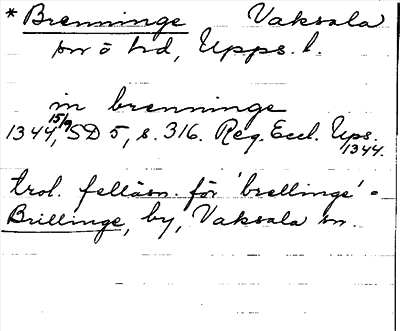 * Brenninge Vaksala
sn o hd, Upps. l.
in brenninge
1344 15/9, SD 5, s. 316. Reg. Eccl. Ups.
1344.
trol. felläsn. för 'brellinge' =
Brillinge, by, Vaksala sn.